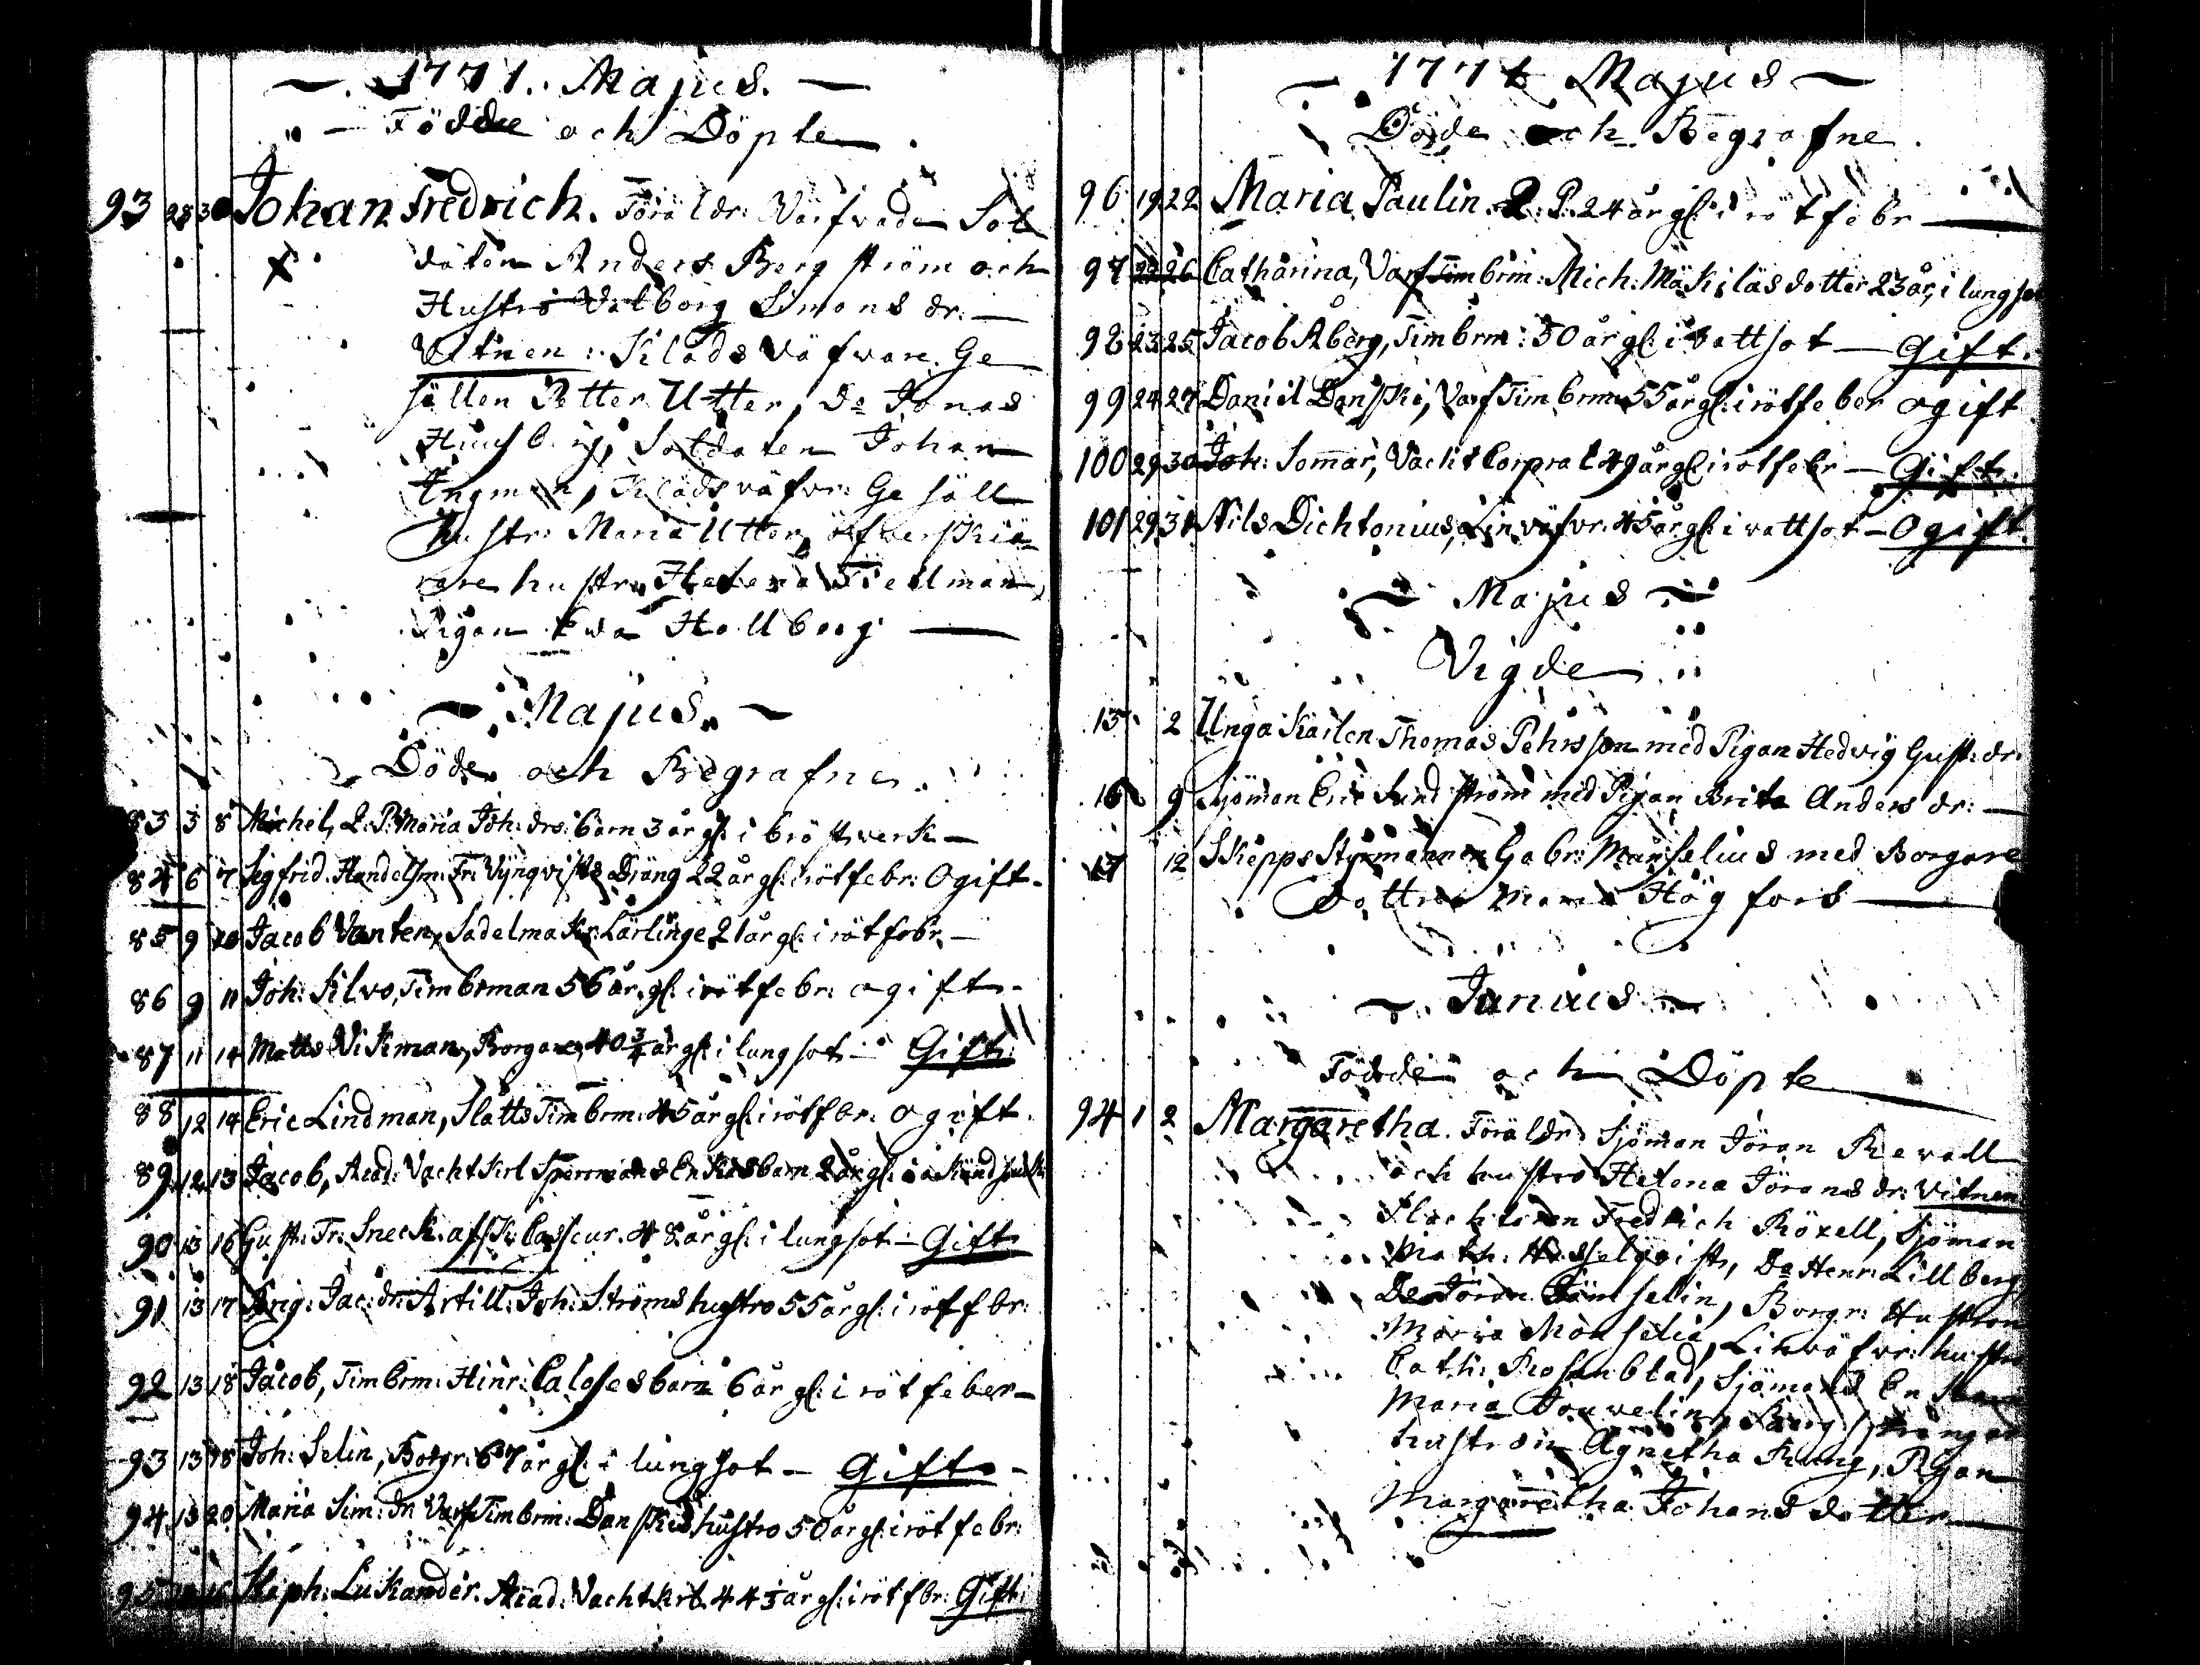 1771. Majus.
Födde och Döpte
93 28 30 Johan Fredrich. Föräldr: Värfvade Sol
daten Anders Bergström och
Hustro Valborg Simons dr.
Vitnen: Klädsväfvare Ge
sällen Petter Utter, Do Jonas
Soldaten Johan
Ingman, Klädsväfvr: Gesäll
hustr: Maria Utter, öfverskiä-
rare hustru Helena Tiellman,
Pigan Eva Hallberg
Majus.
Döde och Begrafne
83 3 8 Michel, L: P: Maria Joh: drs: barn 3 år gl: i bröstverk
84 6 7 Sigfrid. Handelsm: Fr: Vynqvists Dräng 22 år gl: i rötfebr: Ogift
85 9 10 Jacob Vanten, Sadelmak: Lärlinge 21 år gl: i rötfebr.
86 9 11 Joh: Silvo, Timberman 56 år gl: i rötfebr: ogift
87 11 14 Matts Vikman, Borgare, 40 3/4 år gl: i lungsot Gift.
88 12 14 Eric Lindman, Slotts Timbrm: 45 år gl: i rötfbr: ogift.
89 12 13 Jacob, Acad: Vachtkrl Enkas barn 2 år gl: i
90 13 16 Gust: Fr: Sneck. afsk: Casseur. 48 år gl: i lungsot Gift
91 13 17 Brig: Jac: dr: Artill: Joh: Ströms hustro 55 år gl: i rötfbr:
92 13 18 Jacob, Timbrm: Hinr: barn 6 år gl: i rötfeber
93 13 18 Joh: Selin, Borgr: 67 år gl: i lungsot Gift
94 13 20 Maria Sim: dr Varf Timbrm: Danskis hustro 50 år gl: i rötfebr:
95 Steph: Lukander. Acad. Vachtkrl. 44 år gl: i rötfbr: Gift:
1771 Majus
Döde och Begrafne
96 19 22 Maria Paulin. L: P: 24 år gl: i rötfebr
97 26 Catharina, Varf Timbrm: Mich: Mäkiläs dotter 23 år, i lungsot
98 23 25 Jacob Åberg, Timbrm: 50 år gl: i vattsot Gift.
99 24 27 Daniel Danski, Varf Timbrm 55 år gl: i rötfeber ogift
100 29 30 Joh: Sommar, Vacht Corpral 49 år gl: i rötfebr Gift.
101 29 31 Nils Dichtonius, Linväfvr: 45 år gl: i vattsot Ogift.
Majus
Vigde
15 2 Unga Karlen Thomas Pehrsson med Pigan Hedvig Gust: dr:
16 9 Sjöman Eric Sundström med Pigan Brita Anders dr:
17 12 Skepps Styrmannen Gabr: Månselius med Borgare
Dottren Maria Högfors
Junius
Födde och Döpte
94 1 2 Margaretha. Föräldr: Sjöman Jöran Revell
och hustro Helena Jörans dr: Vitnen
Fredrich Röxell, Sjöman
Math: Hesselqvist, Do Henr: Lillberg,
Do Jöran Borgr: Hustron
Maria Månselia, Linväfvr: hustro
Cath: Rosenblad, Sjömans Enkan
Maria
hustrun Agnetha Rung, Pigan
Margaretha Johans dotter